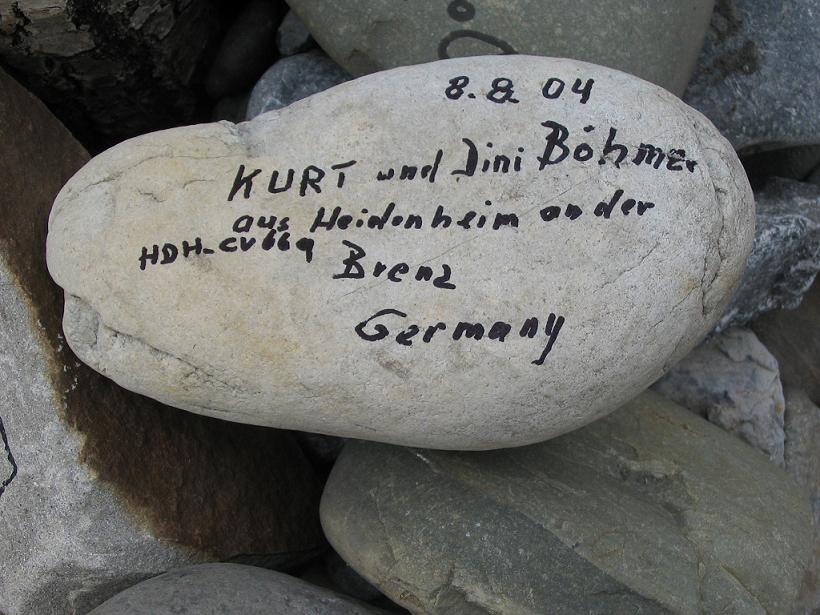 8.8. 04
KURT und Dini Böhmer
aus Heidenheim an der
HDH-CV669
Brenz
Germany